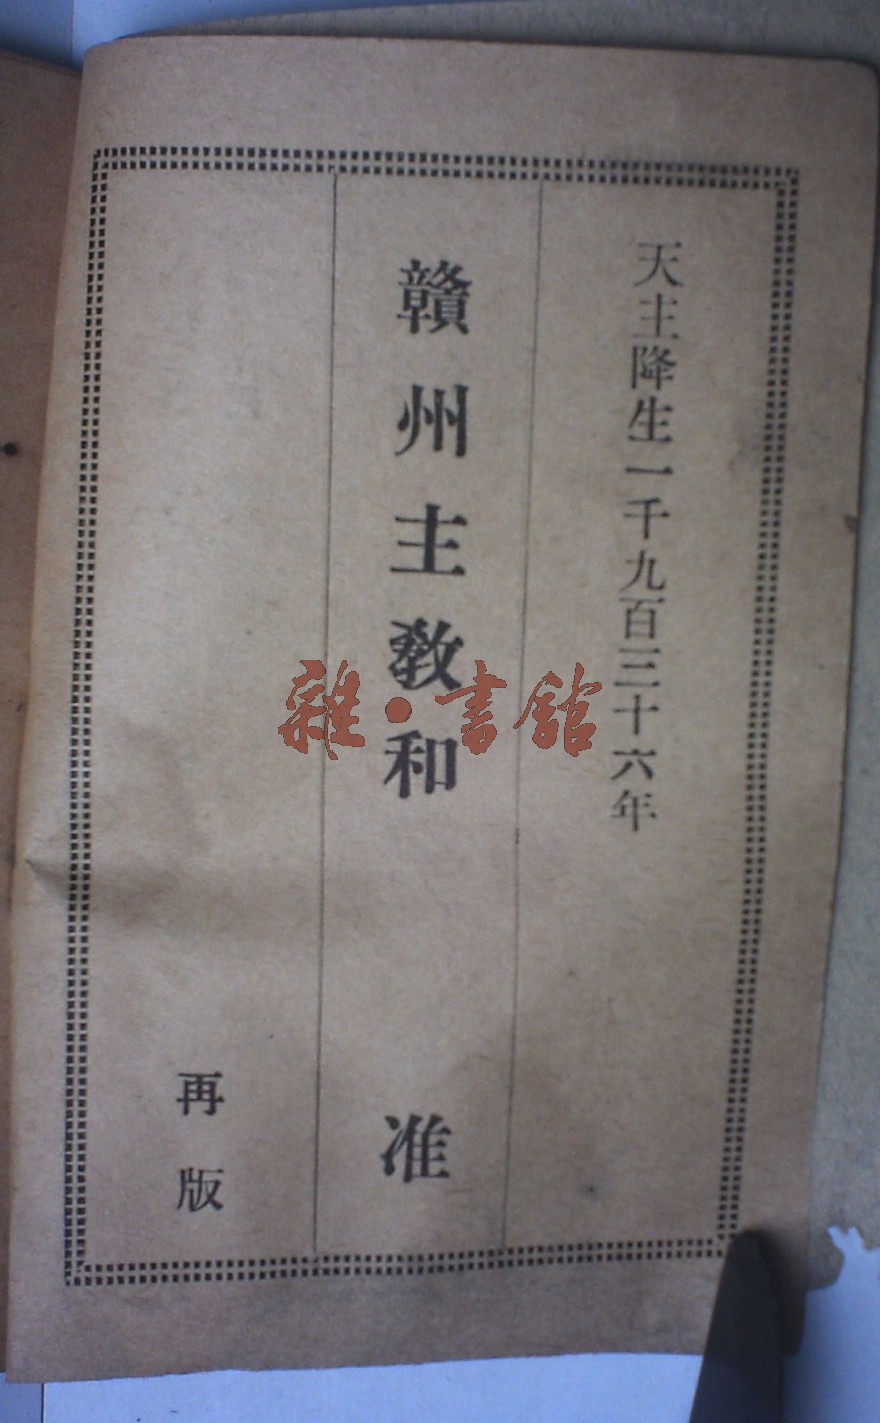 天主降生一千九百三十六年
贛州主教和 准
再版
雜·書館